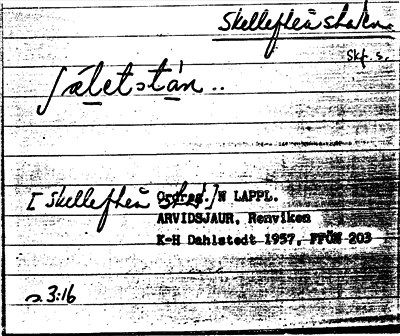 Skellefteå staden.
Skf. s.
ſæletstán..
[Skellefteå stad.] N LAPPL.
ARVIDSJAUR, Renviken
K-H Dahlstedt 1957, FFÖN 203
s. 3:16